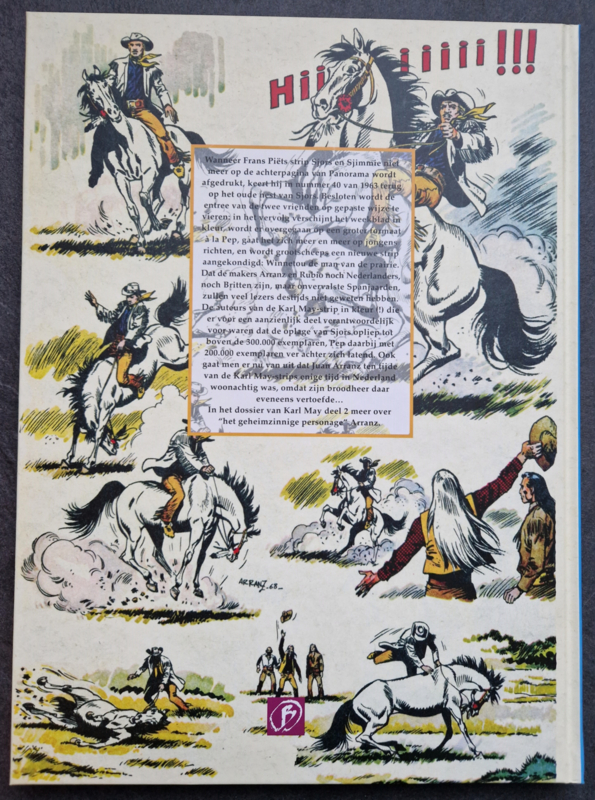 Hii iiiii!!!
Wanneer Frans Piëts strip Sjors en Sjimmie niet
meer op de achterpagina van Panorama wordt
afgedrukt, keert hij in nummer 40 van 1963 terug
op het oude nest van Sjors. Besloten wordt de
entree van de twee vrienden op gepaste wijze te
vieren; in het vervolg verschijnt het weekblad in
kleur, wordt er overgegaan op een groter formaat
à la Pep, gaat het zich meer en meer op jongens
richten, en wordt grootscheeps een nieuwe strip
aangekondigd: Winnetou de man van de prairie.
Dat de makers Arranz en Rubio noch Nederlanders,
noch Britten zijn, maar onvervalste Spanjaarden,
zullen veel lezers destijds niet geweten hebben.
De auteurs van de Karl May-strip in kleur (!) die
er voor een aanzienlijk deel verantwoordelijk
voor waren dat de oplage van Sjors opliep tot
boven de 300.000 exemplaren, Pep daarbij met
200.000 exemplaren ver achter zich latend. Ook
gaat men er nu van uit dat Juan Arranz ten tijde
van de Karl May-strips enige tijd in Nederland
woonachtig was, omdat zijn broodheer daar
eveneens vertoefde...
In het dossier van Karl May deel 2 meer over
"het geheimzinnige personage" Arranz.
ARRANZ-68-